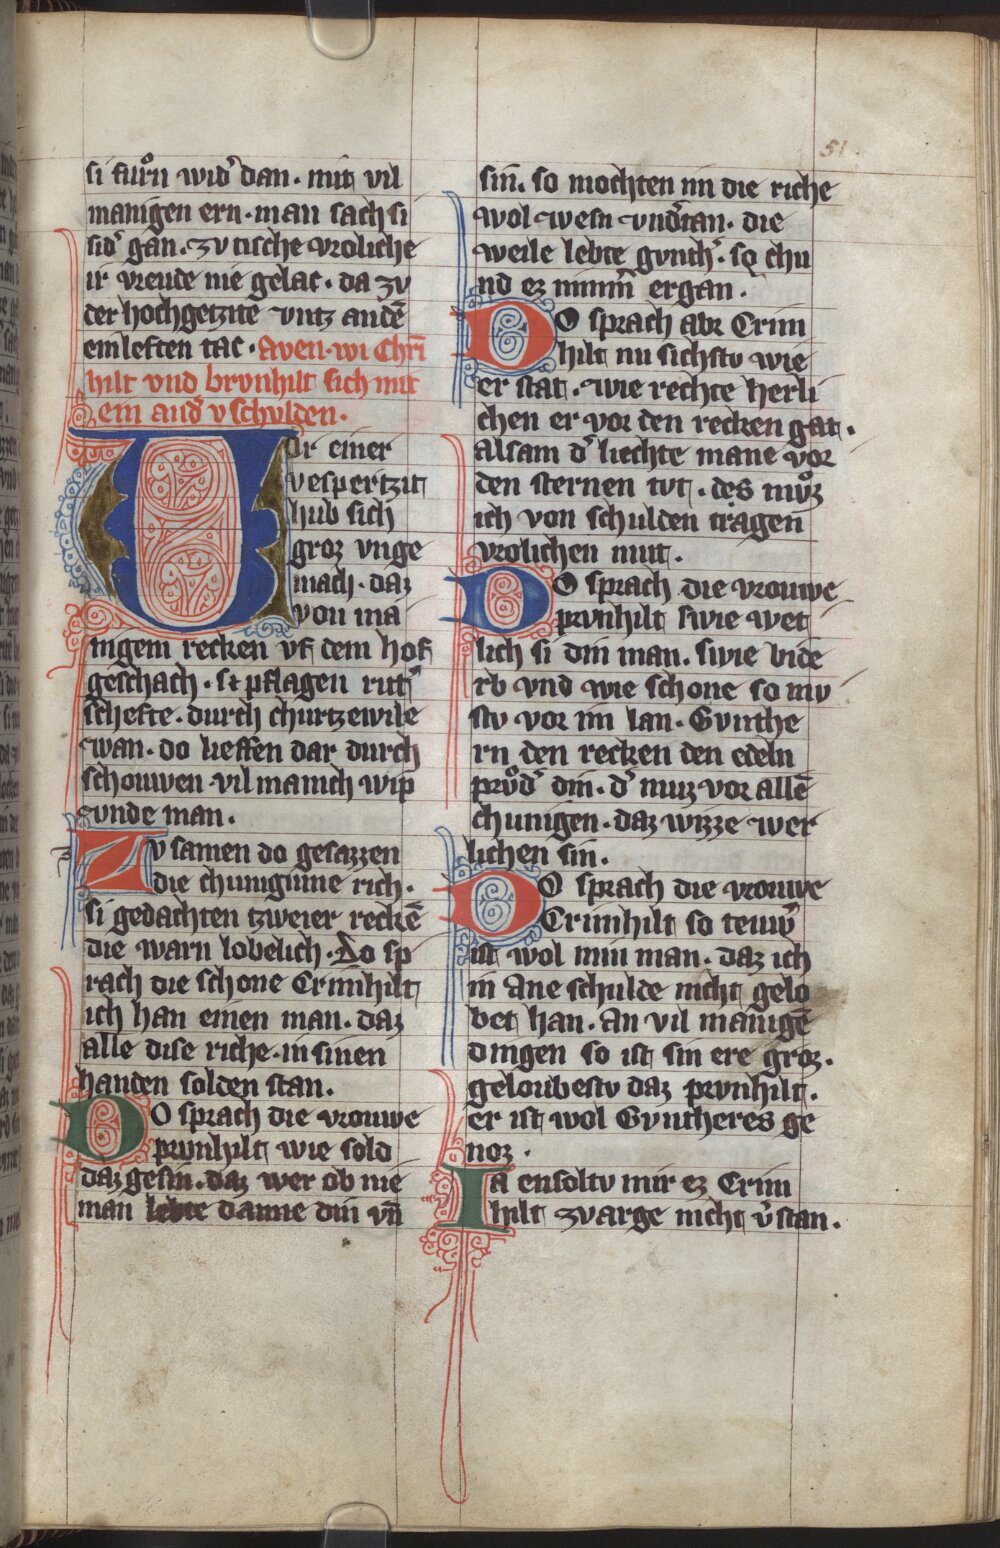 51.
si fuͦrn wid' dan. mit vil
manigen ern. man sach si
sid' gan. zv tische vroliche
ir vreude nie gelac. da zv
der hochgetzite vntz andē
einleften tac. Aven. wi Chrī
hilt vnd brvnhilt sich mit
em and' v schvlden.
Vor einer
vespertzit
hub sich
groz vnge
mach. daz
von ma
nigem recken vf dem hof
geschach. si pflagen ritt'
schefte. durch churtzewile
wan. do lieffen dar durch
schouwen vil manich wip
vnde man.
Zv samen do gesazzen
die chuniginne rich.
si gedachten tzweier reckē
die warn lobelich. Do sp
rach die schone Crimhilt
ich han einen man. daz
alle dise riche. in sinen
handen solden stan.
Do sprach die vrouwe
prvnhilt wie sold
daz gesin. daz wer ob nie
man lebte danne din vn̄
sin. so mochten im die riche
wol wesn vnd'tan. die
weile lebte gvnth'. so chu
nd ez nimm̄ ergan.
Do sprach abr Crim
hilt nu sichstv wie
er stat. wie rechte herli
chen er vor den recken gat.
alsam d' liechte mane vor
den sternen tvt. des muͦz
ich von schulden tragen
vrolichen mut.
Do sprach die vrouwe
prvnhilt swie wet
lich si din man. swie bide
rb vnd wie schone so mv
stv vor im lan. Gvnthe
rn den recken den edeln
prvͦd' din. d' muz vor allē
chunigen. daz wizze wer
lichen sin.
Do sprach die vrouwe
Crimhilt so teuw'
ist wol min man. daz ich
in ane schulde nicht gelo
bet han. An vil manigē
dingen so ist sin ere groz.
geloubestv daz prvnhilt.
er ist wol Gvntheres ge
noz.
Ia ensoltv mir ez Crim
hilt zvarge nicht v'stan.